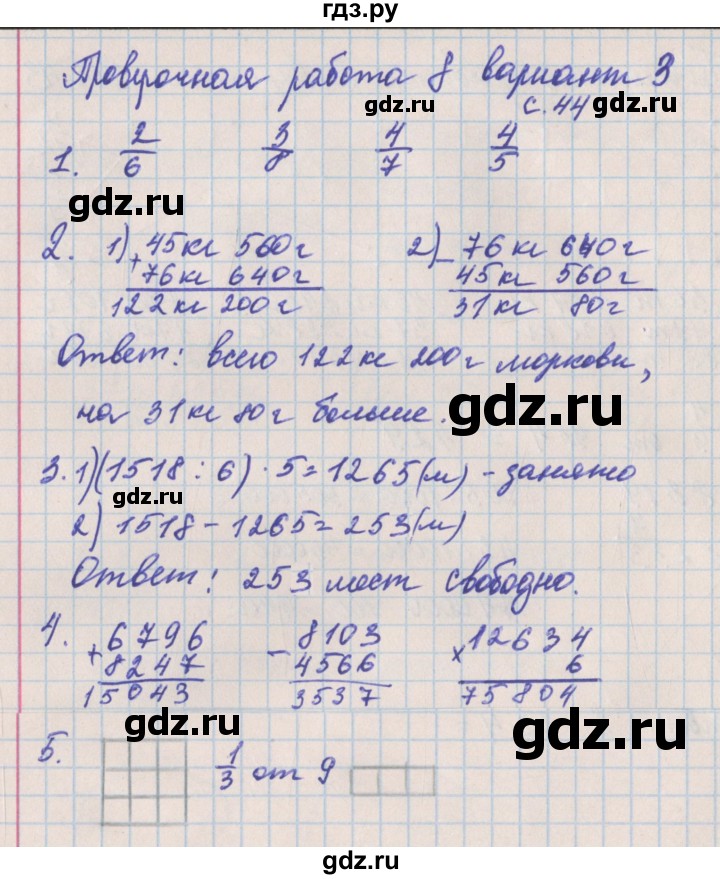 гдз.ру
Проверочная работа 8 вариант 3
gdz.ru с. 44 gdz.ru
1. 2/6 3/8 4/7 4/5
gdz.ru gdz.ru
2. 1) + 45кг 560г 2) - 76кг 640г
76кг 640г 45кг 560г
122кг 200г 31кг 80г
Ответ: всего 122кг 200г моркови,
на 31кг 80г больше. gdz.ru
3. 1) (1518 : 6) · 5 = 1265(м) - занято
gdz.ru
2) 1518 - 1265 = 253(м)
Ответ: 253 мест свободно.
4. + 6796 - 8103 × 12634
8247 4566 6
15043 3537 75804
gdz.ru gdz.ru
5. 1/3 от 9
gdz.ru
gdz.ru